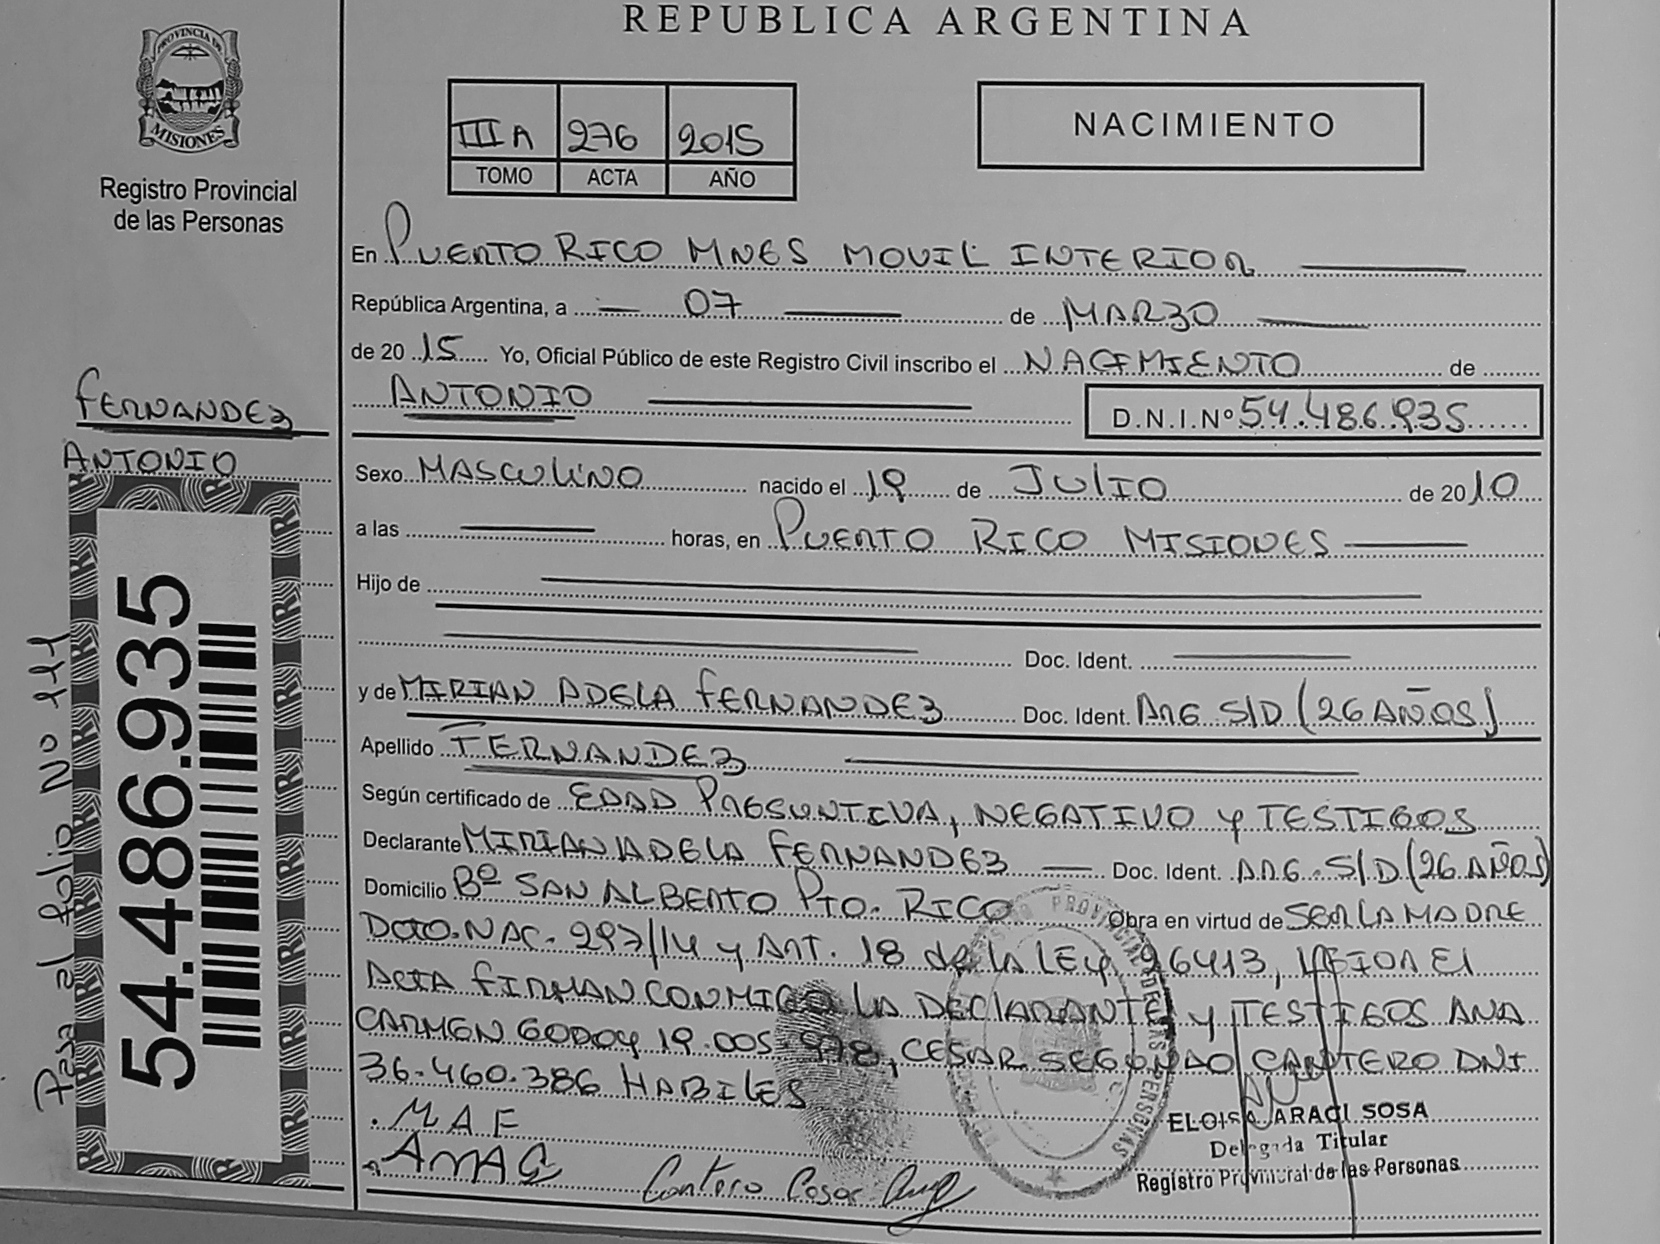 REPUBLICA ARGENTINA
PROVINCIA DE
MISIONES
Registro Provincial
de las Personas
III A 276 2015
TOMO ACTA AÑO
NACIMIENTO
En PUERTO RICO MNES MOVIL INTERIOR
República Argentina, a 07 de MARZO
de 2015 Yo, Oficial Público de este Registro Civil inscribo el NACIMIENTO de
ANTONIO D.N.I.Nº 54.486.935
FERNANDEZ
ANTONIO
54.486.935
Pasa al folio No 111
Sexo MASCULINO nacido el 19 de JULIO de 2010
a las horas, en PUERTO RICO MISIONES
Hijo de
Doc. Ident.
y de MIRIAN ADELA FERNANDEZ Doc. Ident. ARG S/D (26 AÑOS)
Apellido FERNANDEZ
Según certificado de EDAD PRESUNTIVA, NEGATIVO Y TESTIGOS
Declarante MIRIAN ADELA FERNANDEZ Doc. Ident. ARG. S/D (26 AÑOS)
Domicilio Bº SAN ALBERTO PTO. RICO Obra en virtud de SER LA MADRE
DCTO. NAC. 297/14 y ART. 18 de LA LEY 26413, EL
ACTA FIRMAN CONMIGO LA DECLARANTE y TESTIGOS ANA
CARMEN GODOY 19.005.978, CESAR SEGUNDO CANTERO DNI
36.460.386 HABILES
MAF
AMAG
Cantero Cesar
ELOISA ARACI SOSA
Delegada Titular
Registro Provincial de las Personas